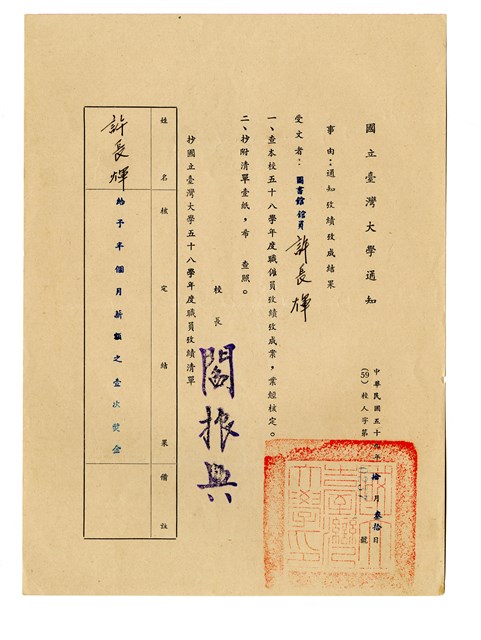 國立臺灣大學通知
中華民國五十九年拾月叁拾日
(59)校人字第 號
事由：通知攷績攷成結果
受文者：圖書館館員 許長輝
一、查本校五十八學年度職僱員攷績攷成案，業經核定。
二、抄附清單壹紙，希 查照。
校長 閻振興
抄國立臺灣大學五十八學年度職員攷績清單
姓名 核定結果 備註
許長輝 給予半個月薪額之壹次獎金
國立臺灣大學印